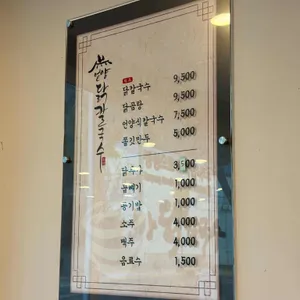 언양닭칼국수
닭칼국수 9,500
닭곰탕 9,500
언양식칼국수 7,500
물만두 5,000
3,500
곱빼기 1,000
공기밥 1,000
소주 4,000
맥주 4,000
음료수 1,500